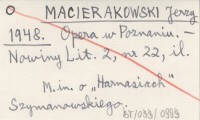 MACIERAKOWSKI Jerzy
1948. Opera w Poznaniu. —
Nowiny Lit. 2, nr 22, il.
M.in. o „Harnasiach"
Szymanowskiego.
BT/033/0993